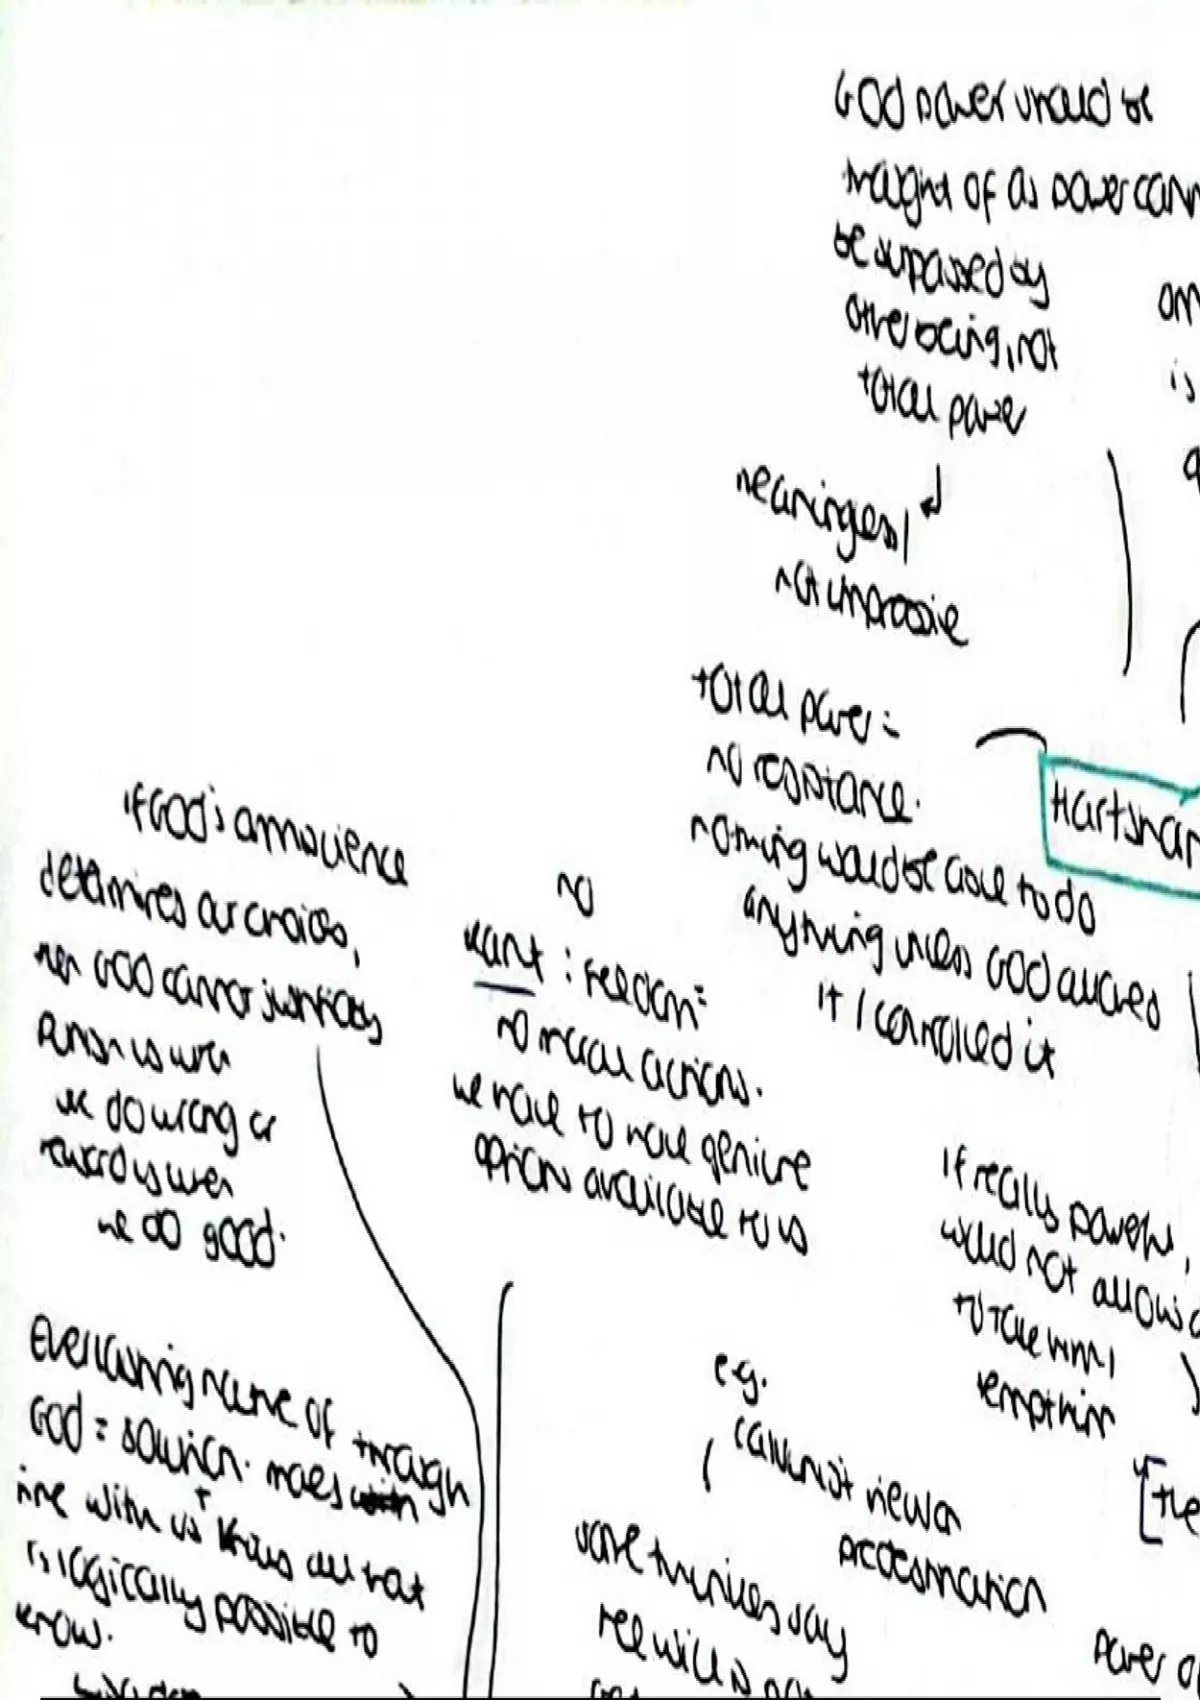 God power should be
thought of as power cann
be surpassed by
other being, not
total power
meaningess/
not impossible
total power =
no resistance.
nothing would be able to do
anything unless God allowed
it / controlled it
om
is
Hartshor
If God's omniscience
determines our choices,
then God cannot justifiably
punish us when
we do wrong or
reward us when
we do good.
no
Kant : freedom =
no moral actions.
we have to have genuine
options available to us
If really powerful,
would not allow
to take him /
tempt him
Everlasting nature of
God = solution. moves through
time with us + knows all that
is logically possible to
know.
e.g.
Calvin's view on
predestination
some thinkers say
free will is
[the
power o